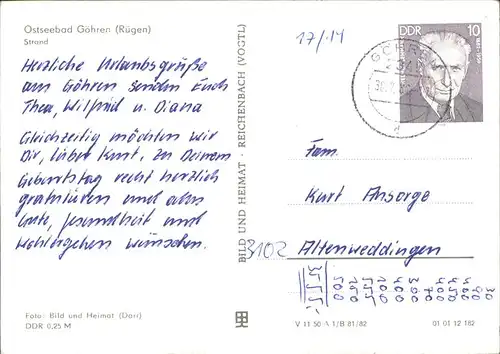 Ostseebad Göhren (Rügen)
Strand
Herzliche Urlaubsgrüße
aus Göhren senden Euch
Thea, Wilfried u. Diana
Gleichzeitig möchten wir
Dir, lieber Kurt, zu Deinem
Geburtstag recht herzlich
gratulieren und alles
Gute, Gesundheit und
Wohlergehen wünschen.
Foto: Bild und Heimat (Darr)
DDR 0,25 M
BILD UND HEIMAT · REICHENBACH (VOGTL)
17/.14
DDR 10
GÖHREN
Fam.
Kurt Ansorge
3102
Altenweddingen
V 11 50 A 1/B 81/82
01 01 12 182